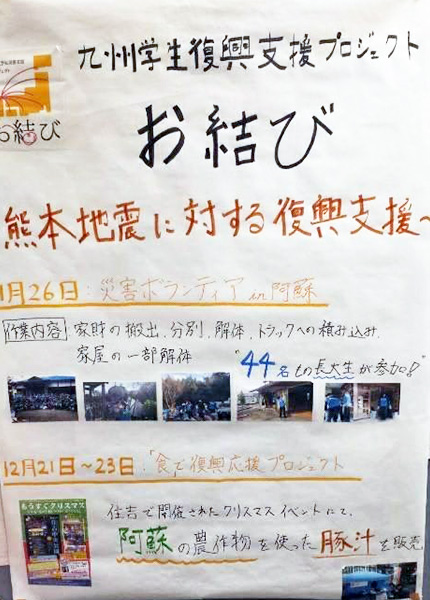 九州学生復興支援プロジェクト
お結び
お結び
熊本地震に対する復興支援~
1月26日:災害ボランティア in 阿蘇
作業内容 家財の搬出、分別、解体、トラックへの積み込み、
家屋の一部解体
"44名もの長大生が参加!!"
12月21日~23日:「食で復興応援プロジェクト
もうすぐクリスマス
住吉で開催されたクリスマスイベントにて、
阿蘇の農作物を使った豚汁を販売